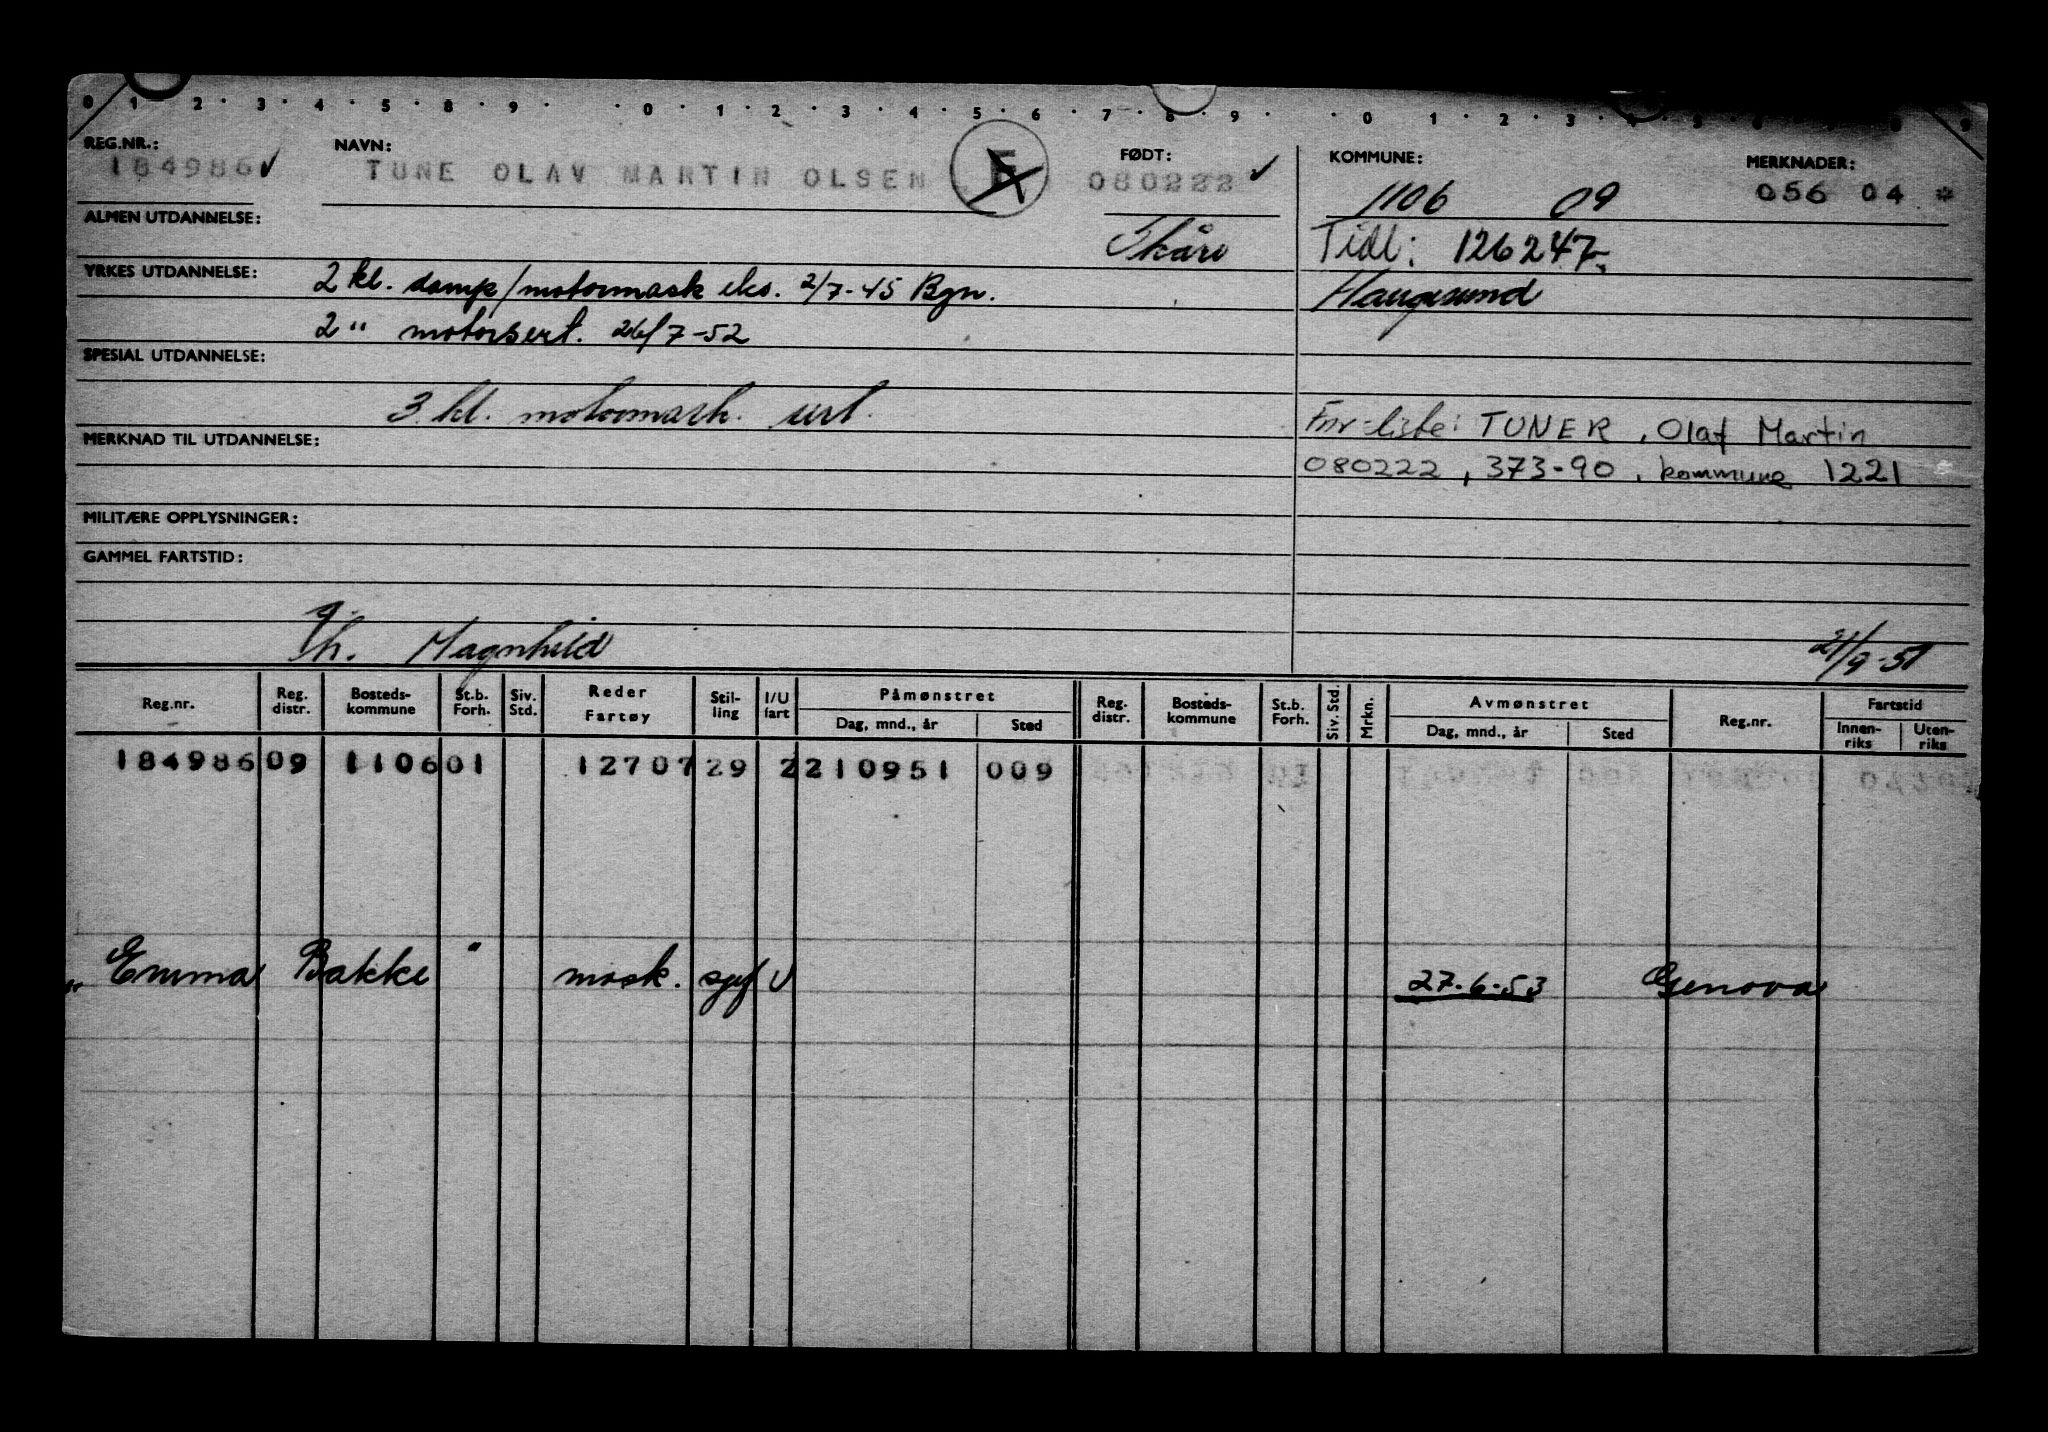 0 1 2 3 4 5 8 9 0 1 2 3 4 5 6 7 8 9 0 1 2 3 4 5 6 7 8 9
REG.NR.: NAVN: FØDT: KOMMUNE: MERKNADER:
184986 TUNE OLAV MARTIN OLSEN 080222 1106 09 056 04 *
ALMEN UTDANNELSE: Skåre Tidl: 126247
YRKES UTDANNELSE: 2 kl. damp/motormask eks. 2/7-45 Bgn. Haugesund
2 " motorsert. 26/7-52
SPESIAL UTDANNELSE:
3 kl. motormask. sert. Fnr-liste: TUNER, Olaf Martin
MERKNAD TIL UTDANNELSE: 080222, 373-90, kommune 1221
MILITÆRE OPPLYSNINGER:
GAMMEL FARTSTID:
g.
m. Magnhild 21/9-51
Reg.nr. Reg. distr. Bosteds-kommune St.b. Forh. Siv. Std. Reder Fartøy Stil-ling I/U fart Påmønstret Dag, mnd., år Sted Reg. distr. Bosteds-kommune St.b. Forh. Siv. Std. Mrkn. Avmønstret Dag, mnd., år Sted Reg.nr. Fartstid Innen-riks Uten-riks
184986 09 1106 01 12707 29 2 210951 009
" Emma Bakke " mask. U 27.6.53 Genova